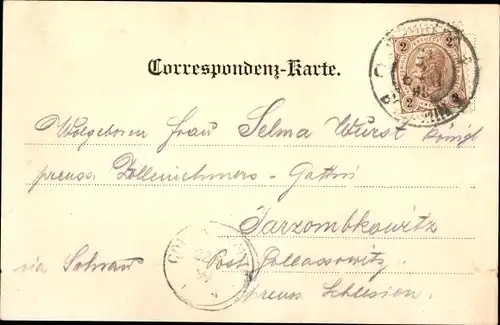 Correspondenz-Karte.
2 2
2 2
Wolgeboren Frau Selma Wurst königl
preuss. Zolleinehmers-Gattin
Jarzombkowitz
via Sohrau Post Pallassowitz
preuss. Schlesien.